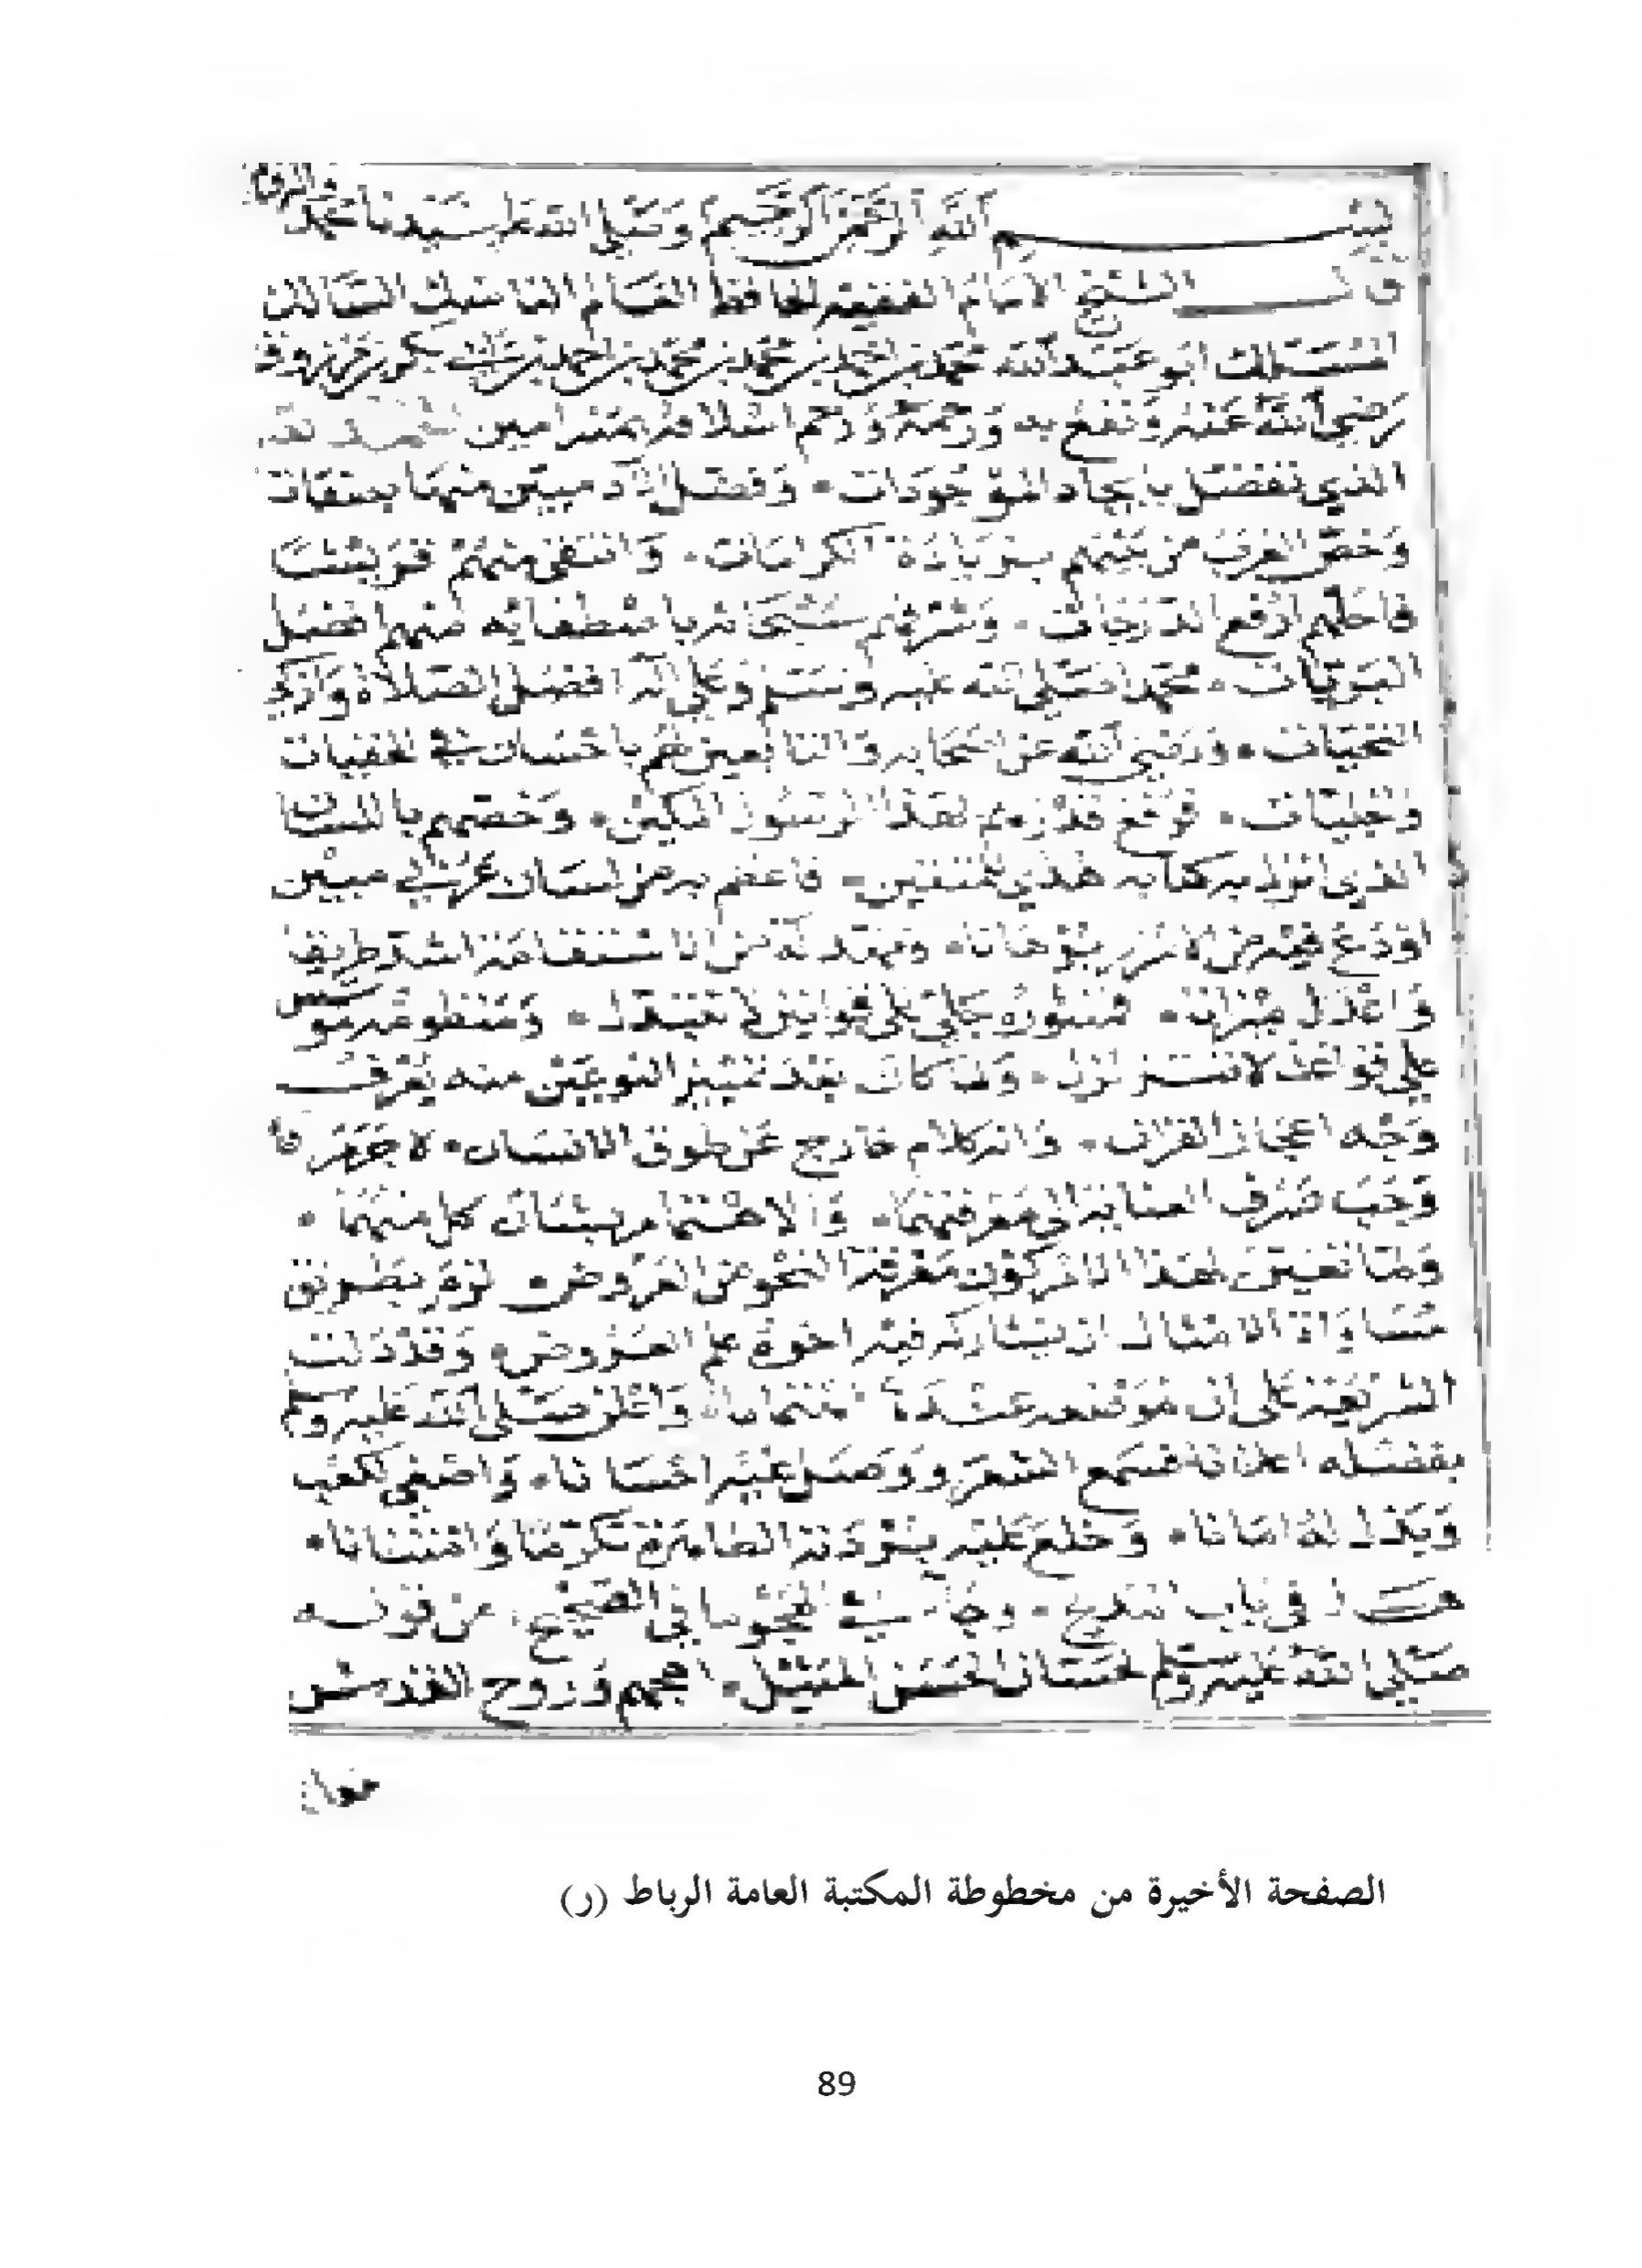 بسم الله الرحمن الرحيم وصلى الله على سيدنا محمد
قال الشيخ الامام الفقيه الحافظ العالم الناسك السالك
ابو عبد الله محمد بن احمد بن محمد بن محمد بن احمد بن ابي بكر بن مرزوق
رضي الله عنه ونفع به ورحمه ورحم اسلافه بمنه امين
الذي تفضل بايجاد الموجودات وفضل الادميين منها
وخص العرب من بينهم بزيادة الكرامات وانتقى منهم قريشا
فاحلهم ارفع الدرجات وشرفهم سبحانه باصطفائه منهم افضل
البريات محمدا صلى الله عليه وسلم وعلى اله افضل الصلاة وازكى
التحيات ورضي الله عن اصحابه والتابعين لهم باحسان في الخفيات
والجليات فرفع قدرهم بهذا الرسول المكين وخصهم باللسان
الذي انزل به كتابه هدى للمتقين فاعظم به من لسان عربي مبين
اودع فيه من الاسرار برهانا ومهد له من الاستقامة اسد طريق
واعدل ميزان فمنثوره جار على قوانين لا تتبدل ومنظومه موسس
على قواعد لا تتزلزل ولما كان بعد تمييز النوعين منه يعرف
وجه اعجاز القران والكلام خارج عن طوق الانسان لا جرم
وجب صرف العناية الى معرفتهما والاهتمام بشان كل منهما
ولما تعين لهذا الامر كون معرفة النحو من المفروض لزم بطريق
مساواة الامثال ان يشاركه فيه اخوه علم العروض وقد دلت
الشريعة على ان موقعه واعلن صلى الله عليه وسلم
بفضله اعلانا فسمع الشعر ووصل عليه احسانا واصغى لكعب
وبذل له امانا وخلع عليه بردته الطاهرة تكرما وامتنانا
في باب المديح في الصحيح من قوله
صلى الله عليه وسلم لحسان اهجهم وروح القدس
معك
الصفحة الأخيرة من مخطوطة المكتبة العامة الرباط (ر)
89